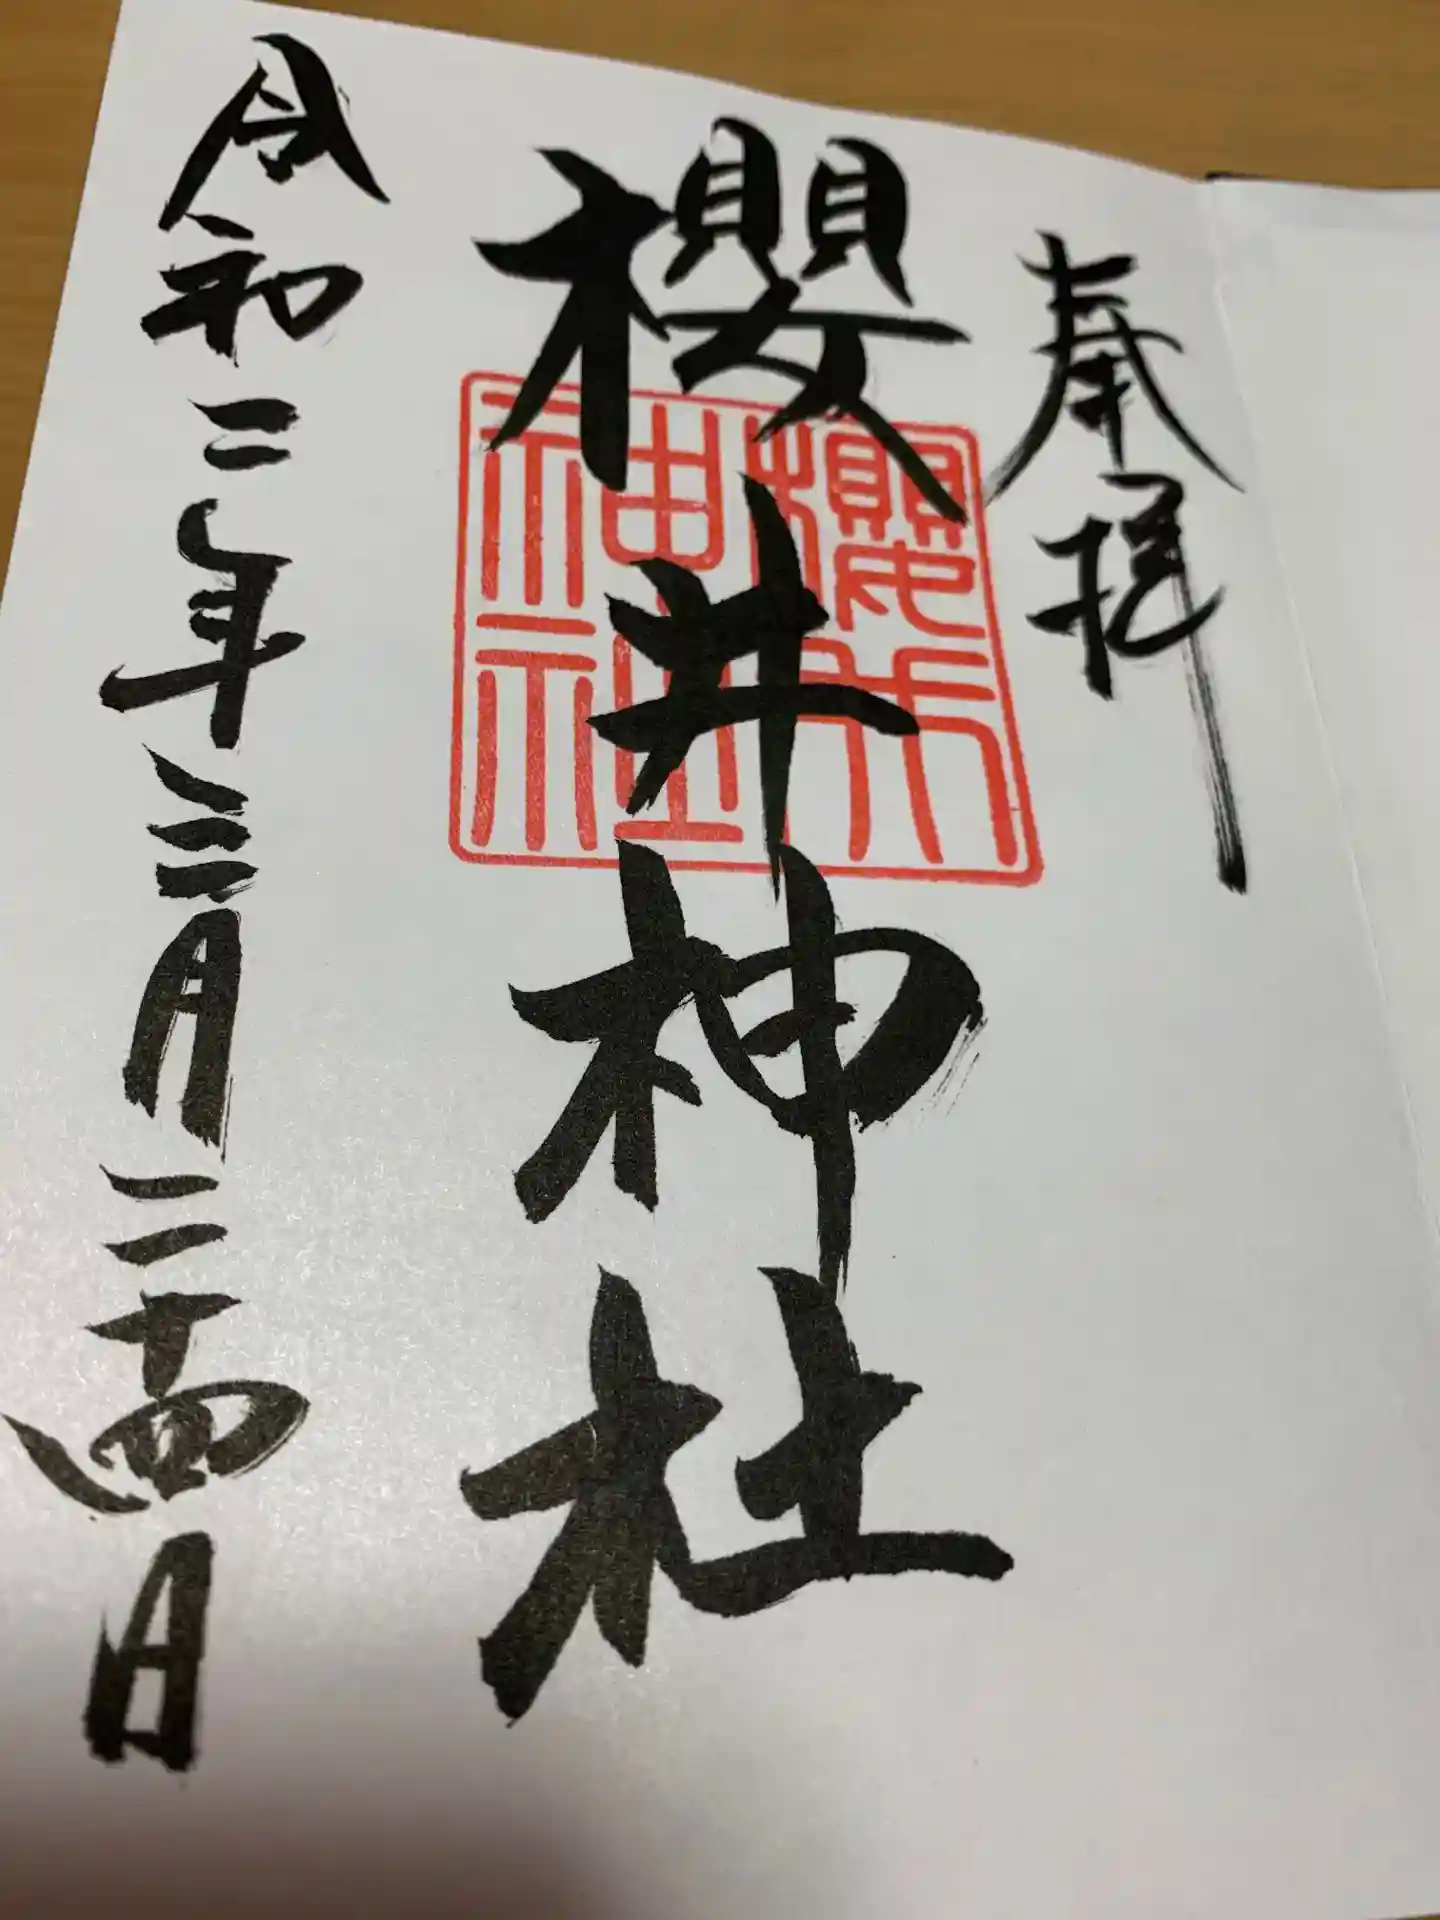 奉拝
櫻井神社
櫻井神社
令和二年三月二十四日